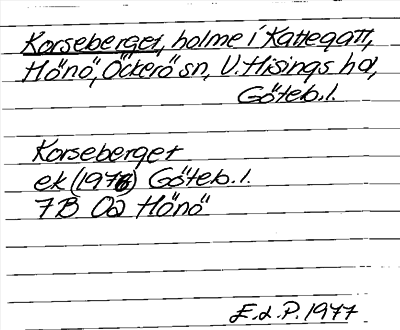 Korseberget, holme i Kattegatt,
Hönö, Öckerö sn, V. Hisings hd,
Göteb. l.
Korseberget
ek (1976) Göteb. l.
7B 0a Hönö
E. d. P. 1977